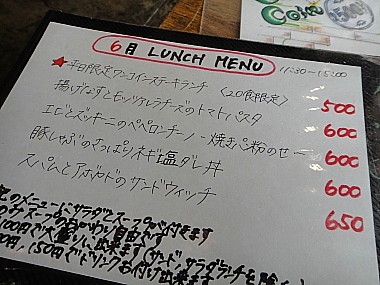 6月 LUNCH MENU
11:30-15:00
★平日限定ワンコインステーキランチ〈20食限定〉 500
揚げなすとモッツァレラチーズのトマトパスタ 600
エビとズッキーニのペペロンチーノ -焼きパン粉のせー 600
豚しゃぶのさっぱりネギ塩ダレ丼 600
スパムとアボカドのサンドウィッチ 650
のメニューにサラダとスープが付きます
スープのおかわり自由です
100円で大盛りに出来ます(サンド、サラダランチを除
円、150円でドリンクお付け出来ます